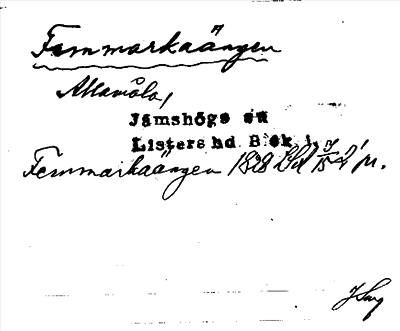 Femmarkaängen
Allavåla,
Jämshögs sn
Listers hd. Blek. l.
Femmarkaängen 1828